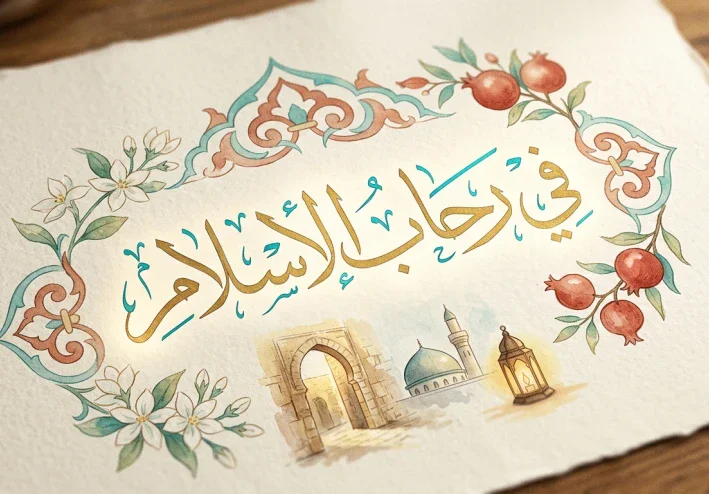 فِي رحَابُ الإسْلَامِ